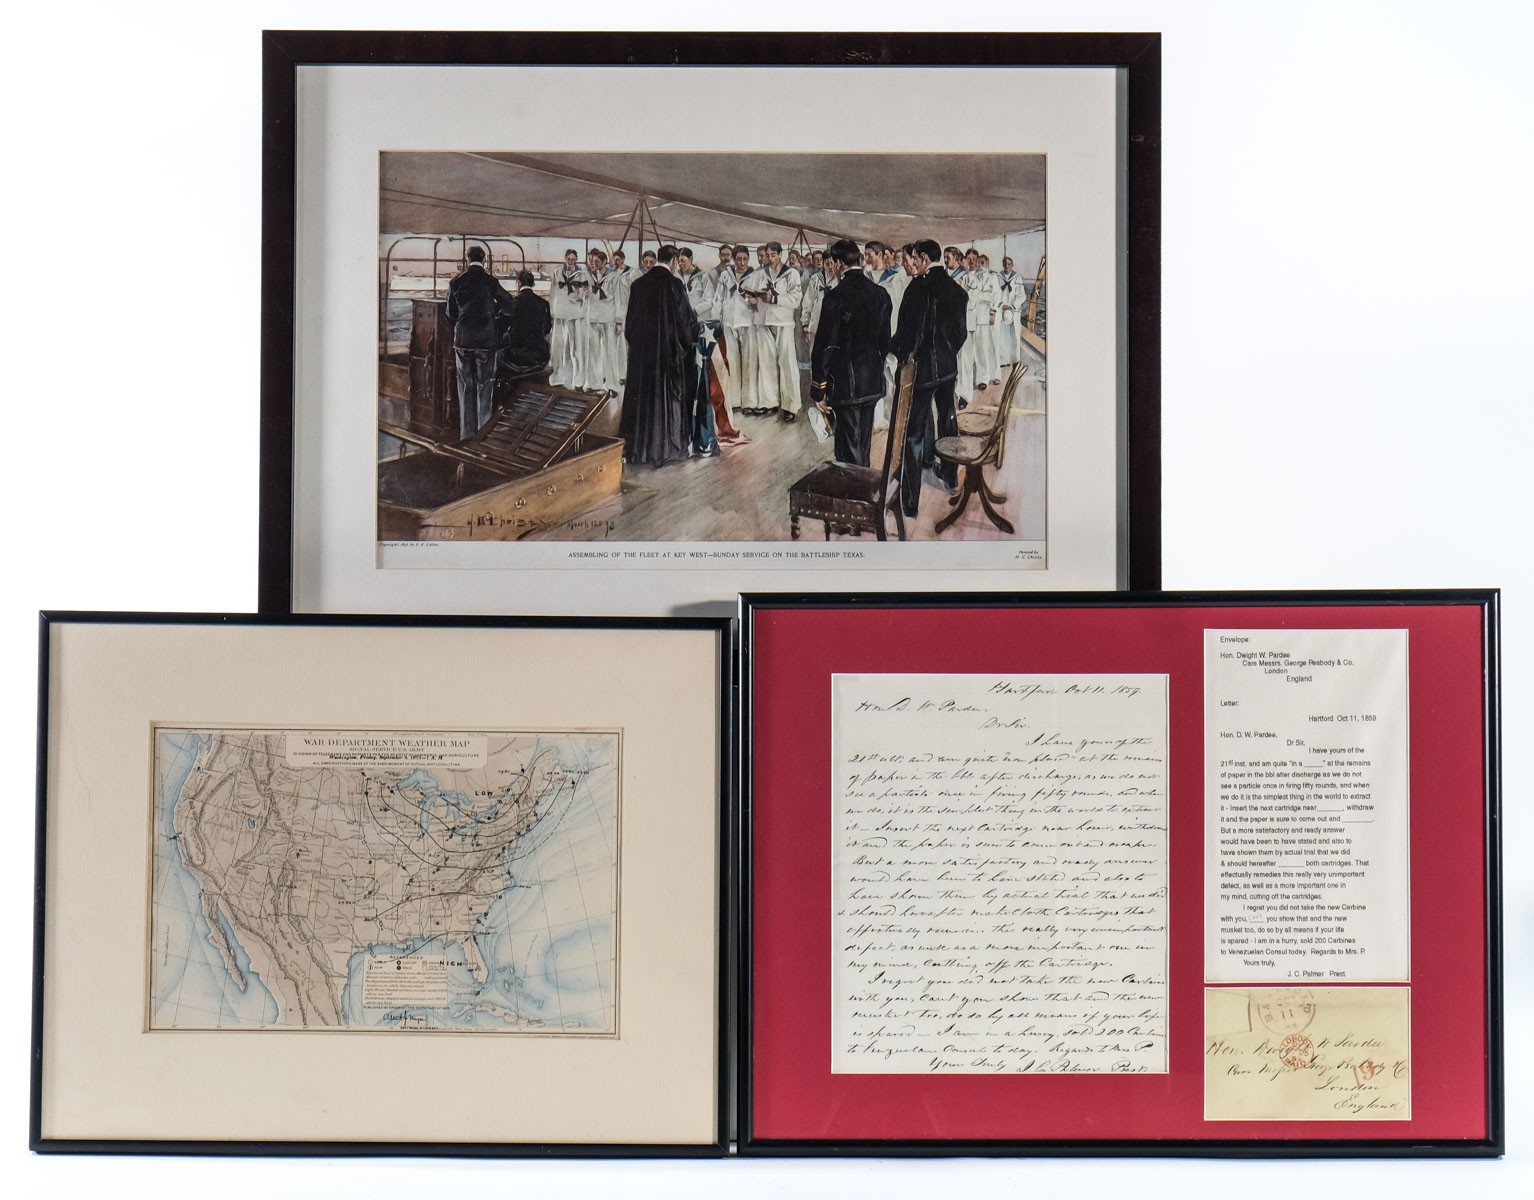 H. C. Christy March 1898
Copyright, 1898, by P. F. Collier.
ASSEMBLING OF THE FLEET AT KEY WEST—SUNDAY SERVICE ON THE BATTLESHIP TEXAS.
Painted by
H. C. Christy
WAR DEPARTMENT WEATHER MAP
SIGNAL SERVICE U.S. ARMY
DIVISION OF TELEGRAMS AND REPORTS FOR THE BENEFIT OF COMMERCE AND AGRICULTURE
Washington, Friday, September 5, 1873—1 A. M.
LOW
HIGH
REFERENCES
PUBLISHED BY ORDER OF THE SECRETARY OF WAR
Hartford Oct 11. 1859.
Hon D. W. Pardee,
Dr Sir.
I have yours of the
21st ult. and am quite "non plused" at the remains
of paper in the bbl after discharge, as we do not
see a particle once in firing fifty rounds, and when
we do, it is the simplest thing in the world to extract
it – Insert the next Cartridge near home, withdraw
it and the paper is sure to come out and escape.
But a more satisfactory and ready answer
would have been to have stated and also to
have shown them by actual trial that we did
& should hereafter make Cloth Cartridges that
effectually remedies this really very unimportant
defect, as well as a more important one in
my mind, Cutting off the Cartridge.
I regret you did not take the new Carbine
with you, Can't you show that and the new
musket too, do so by all means if your life
is spared – I am in a hurry, sold 200 Carbines
to Venezuelan Consul to day. Regards to Mrs P.
Yours truly J. C. Palmer Prest
Envelope:
Hon. Dwight W. Pardee
Care Messrs. George Peabody & Co.
London
England
Letter:
Hartford Oct 11, 1859
Hon. D. W. Pardee,
Dr Sir,
I have yours of the
21st inst. and am quite "in a _____" at the remains
of paper in the bbl after discharge as we do not
see a particle once in firing fifty rounds, and when
we do it is the simplest thing in the world to extract
it - Insert the next cartridge near_______, withdraw
it and the paper is sure to come out and ________.
But a more satisfactory and ready answer
would have been to have stated and also to
have shown them by actual trial that we did
& should hereafter _______ both cartridges. That
effectually remedies this really very unimportant
defect, as well as a more important one in
my mind, cutting off the cartridges.
I regret you did not take the new Carbine
with you, can't you show that and the new
musket too, do so by all means if your life
is spared - I am in a hurry, sold 200 Carbines
to Venezuelan Consul today. Regards to Mrs. P.
Yours truly,
J. C. Palmer Prest.
11
Hon. Dwight W Pardee
Care Messrs Geo Peabody & Co
London
England